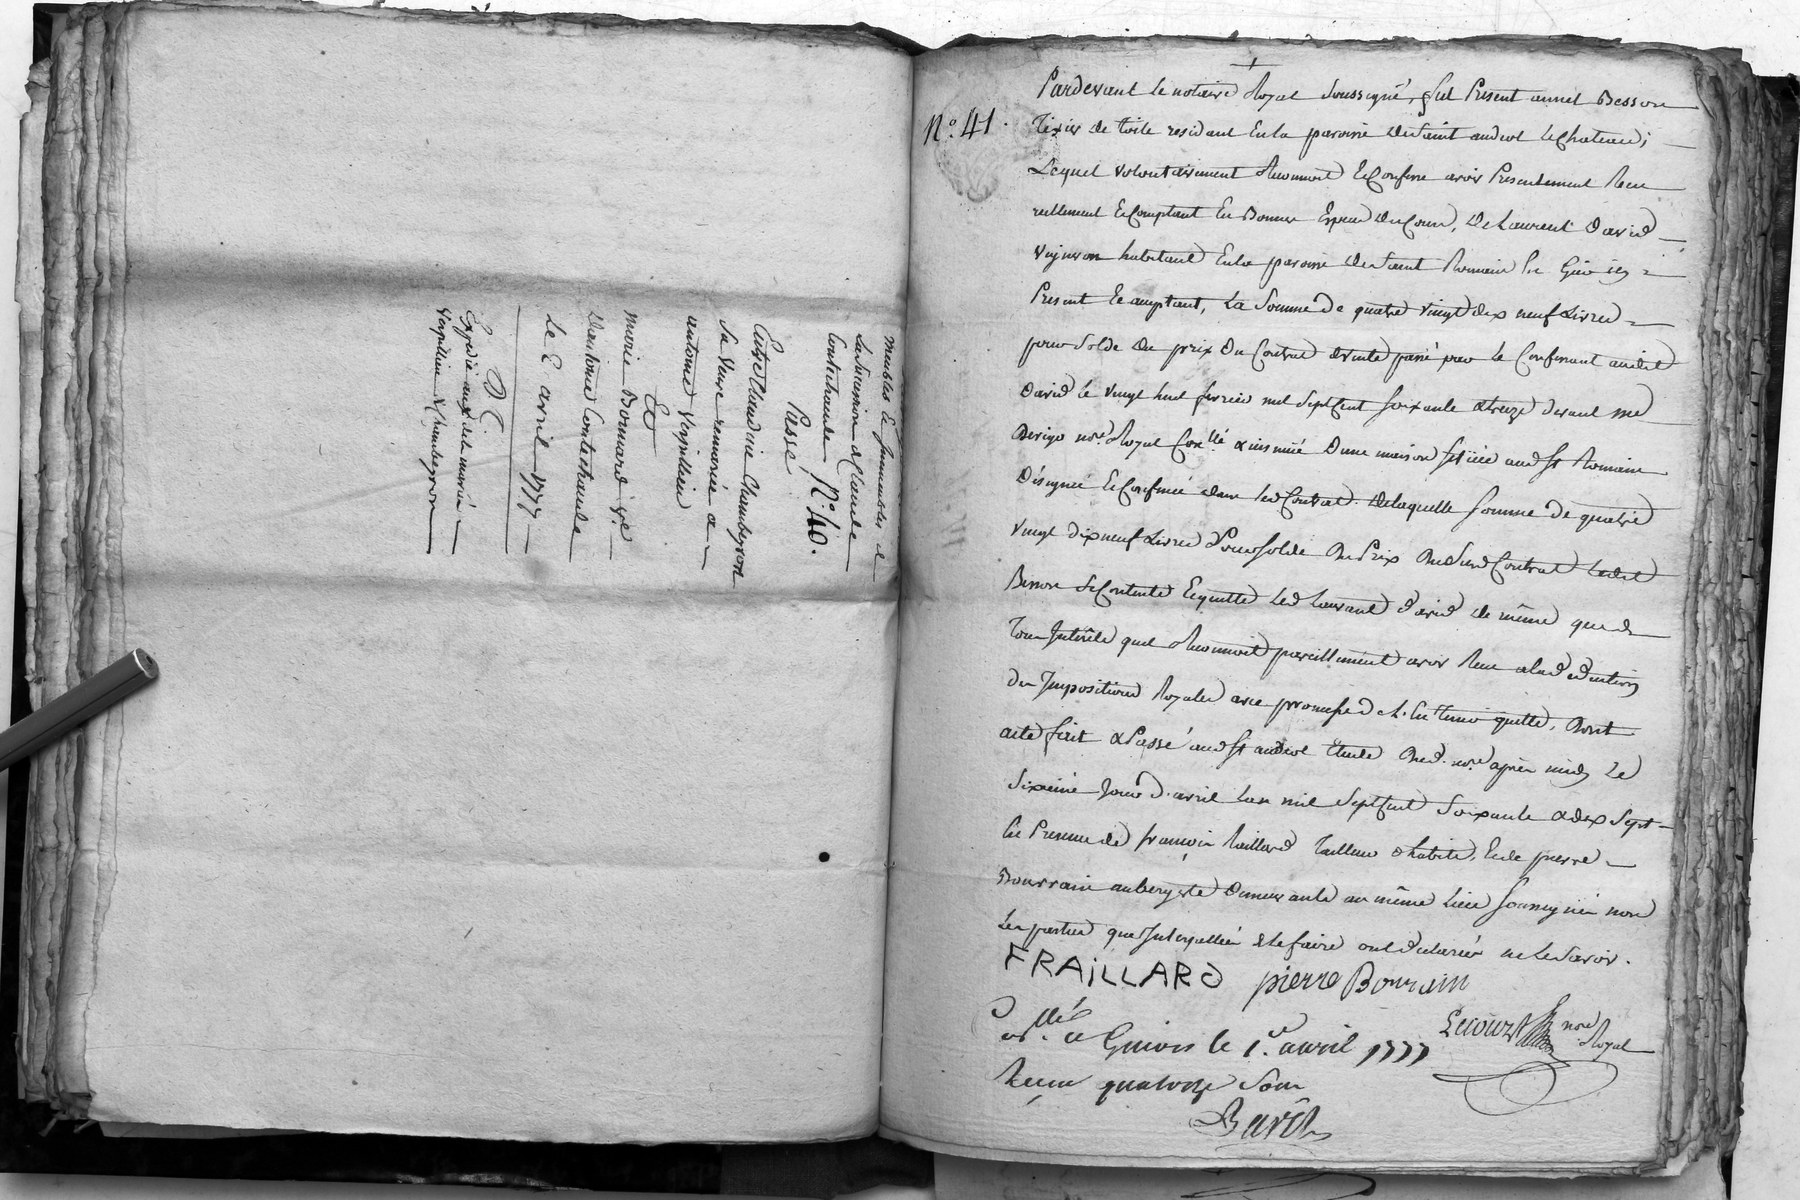 meubles et immeubles de
la succession de Claude
Contechaude N.º 40.
Passé
Entre Claudine Chambeyron
sa veuve remariée a
antoine Verpillieu
Et
marie Bonnard v.e
D'antoine Contechaude
Le 2 avril 1777
D C
Expedié aux dits mariés
Verpillieu & Chambeyron
N.º 41.
Pardevant le notaire Royal soussigné, fut Present annet Besson
Tixier de toile residant En la paroisse de saint andeol le Chateau;
Lequel volontairement Reconnoit & Confesse avoir Presentement Reçu
reellement & Comptant En Bonnes Especes du Cours, de Laurent David
vigneron habitant En la paroisse de saint Romain En Gier icy
Present & acceptant, La Somme de quatre vingt dix neuf Livres
pour Solde du prix du Contrat de vente passé par le Confessant audit
David le vingt huit fevrier mil sept Cent soixante & treize devant me
nore Royal Conllé & insinué D'une maison scituée aud St Romain
Désignée & Confinée dans led Contrat. De laquelle somme de quatre
vingt dix neuf Livres Pour solde du Prix dud Contrat Ledit
Besson se Contente & quitte led Laurent David de même que de
Tous Interêts quil Reconnoit pareillement avoir Reçu a la deduction
des Impositions Royales avec promesse de l'en tenir quitte. Dont
acte fait & Passé aud St andeol Etude dud. nore après midy Le
Sixieme Jour d'avril L'an mil sept Cent Soixante & dix Sept
En Presence de françois Raillard Tailleur d'habits, & de pierre
Bourrain aubergiste Demeurants au même Lieu soussignés non
Les parties que Interpellées de le faire ont declarées ne le savoir.
FRAILLARD pierre Bourrain
Lecourt nore Royal
Conllé a Givors le 1.e avril 1777
Reçu quatorze sous
Barét